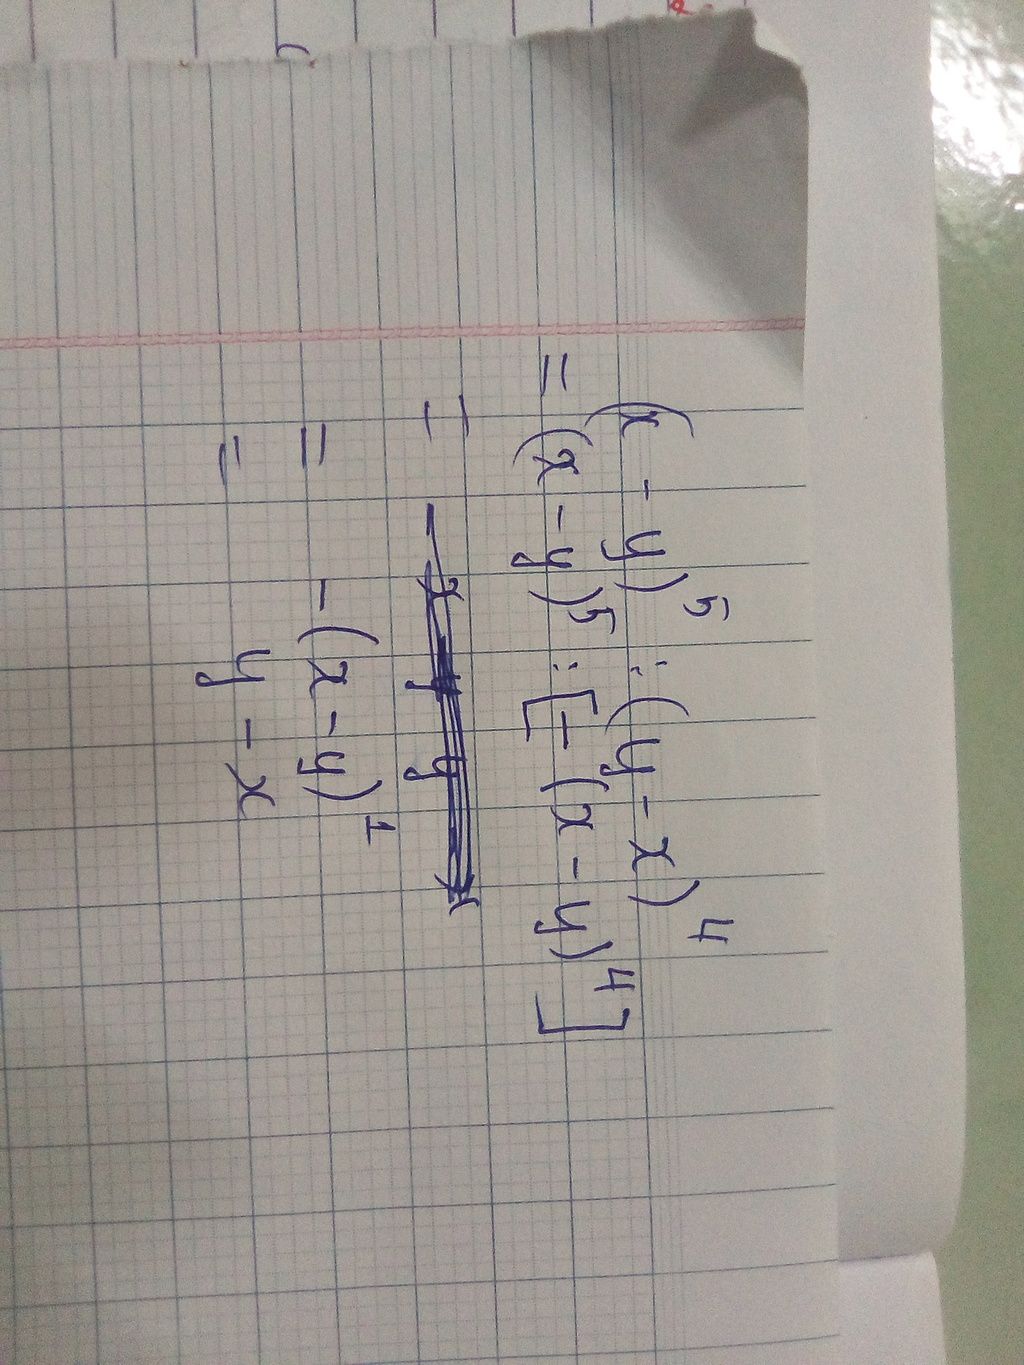 (x - y)⁵ : (y - x)⁴
= (x - y)⁵ : [-(x - y)⁴]
=
= -(x - y)¹
= y - x